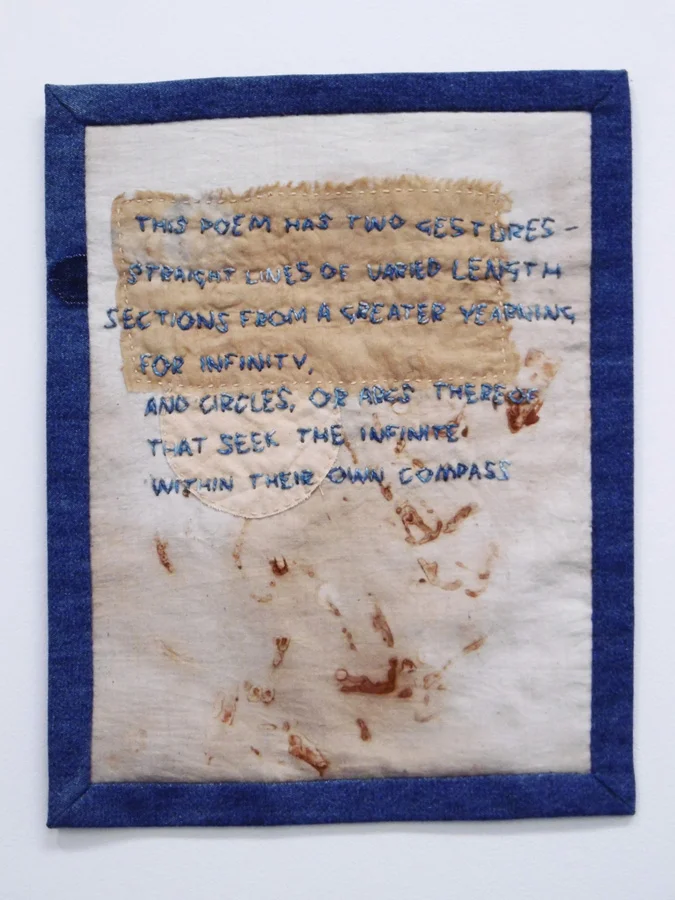 THIS POEM HAS TWO GESTURES -
STRAIGHT LINES OF VARIED LENGTH
SECTIONS FROM A GREATER YEARNING
FOR INFINITY,
AND CIRCLES, OR ARCS THEREOF
THAT SEEK THE INFINITE
WITHIN THEIR OWN COMPASS